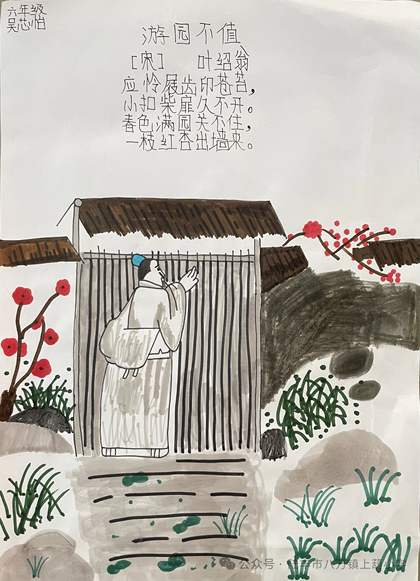 六年级
吴芯怡
游园不值
[宋] 叶绍翁
应怜屐齿印苍苔，
小扣柴扉久不开。
春色满园关不住，
一枝红杏出墙来。
公众号·